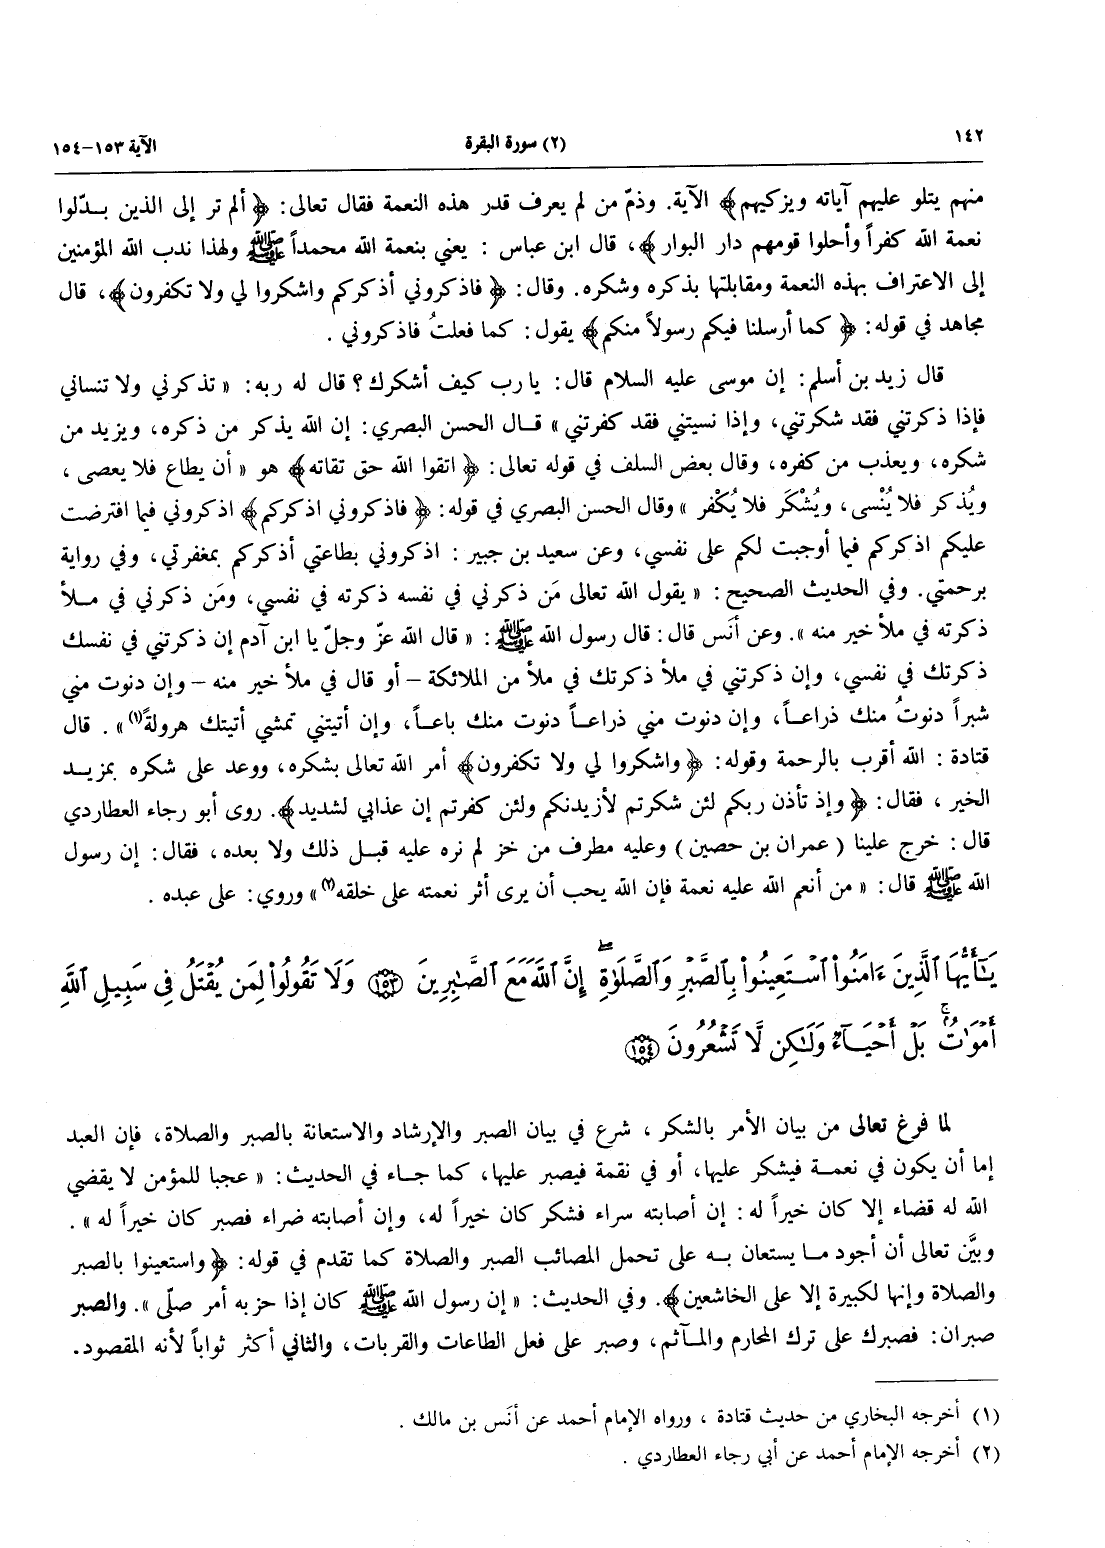 ١٤٢ (٢) سورة البقرة الآية ١٥٣-١٥٤
منهم يتلو عليهم آياته ويزكيهم﴾ الآية. وذمّ من لم يعرف قدر هذه النعمة فقال تعالى: ﴿ألم تر إلى الذين بدّلوا
نعمة الله كفراً وأحلوا قومهم دار البوار﴾، قال ابن عباس : يعني بنعمة الله محمداً ﷺ ولهذا ندب الله المؤمنين
إلى الاعتراف بهذه النعمة ومقابلتها بذكره وشكره. وقال: ﴿فاذكروني أذكركم واشكروا لي ولا تكفرون﴾، قال
مجاهد في قوله: ﴿كما أرسلنا فيكم رسولاً منكم﴾ يقول: كما فعلتُ فاذكروني .
قال زيد بن أسلم: إن موسى عليه السلام قال: يا رب كيف أشكرك؟ قال له ربه: « تذكرني ولا تنساني
فإذا ذكرتني فقد شكرتني، وإذا نسيتني فقد كفرتني » قال الحسن البصري: إن الله يذكر من ذكره، ويزيد من
شكره، ويعذب من كفره، وقال بعض السلف في قوله تعالى: ﴿اتقوا الله حق تقاته﴾ هو « أن يطاع فلا يعصى ،
ويُذكر فلا يُنْسى، ويُشْكَر فلا يُكْفر » وقال الحسن البصري في قوله: ﴿فاذكروني اذكركم﴾ اذكروني فيما افترضت
عليكم اذكركم فيما أوجبت لكم على نفسي، وعن سعيد بن جبير : اذكروني بطاعتي أذكركم بمغفرتي، وفي رواية
برحمتي. وفي الحديث الصحيح: « يقول الله تعالى مَن ذكرني في نفسه ذكرته في نفسي، ومَن ذكرني في ملأ
ذكرته في ملأ خير منه ». وعن أنَس قال: قال رسول الله ﷺ: « قال الله عزّ وجلّ يا ابن آدم إن ذكرتني في نفسك
ذكرتك في نفسي، وإن ذكرتني في ملأ ذكرتك في ملأ من الملائكة - أو قال في ملأ خير منه - وإن دنوت مني
شبراً دنوتُ منك ذراعاً، وإن دنوت مني ذراعاً دنوت منك باعاً، وإن أتيتني تمشي أتيتك هرولةً(١)» . قال
قتادة : الله أقرب بالرحمة وقوله: ﴿واشكروا لي ولا تكفرون﴾ أمر الله تعالى بشكره، ووعد على شكره بمزيد
الخير ، فقال: ﴿وإذ تأذن ربكم لئن شكرتم لأزيدنكم ولئن كفرتم إن عذابي لشديد﴾. روى أبو رجاء العطاردي
قال : خرج علينا ( عمران بن حصين ) وعليه مطرف من خز لم نره عليه قبل ذلك ولا بعده ، فقال: إن رسول
الله ﷺ قال: « من أنعم الله عليه نعمة فإن الله يحب أن يرى أثر نعمته على خلقه(٢)» وروي: على عبده .
يَٰٓأَيُّهَا ٱلَّذِينَ ءَامَنُوا۟ ٱسْتَعِينُوا۟ بِٱلصَّبْرِ وَٱلصَّلَوٰةِ ۖ إِنَّ ٱللَّهَ مَعَ ٱلصَّٰبِرِينَ ١٥٣ وَلَا تَقُولُوا۟ لِمَن يُقْتَلُ فِى سَبِيلِ ٱللَّهِ
أَمْوَٰتٌۢ ۚ بَلْ أَحْيَآءٌ وَلَٰكِن لَّا تَشْعُرُونَ ١٥٤
لما فرغ تعالى من بيان الأمر بالشكر ، شرع في بيان الصبر والإرشاد والاستعانة بالصبر والصلاة، فإن العبد
إما أن يكون في نعمة فيشكر عليها، أو في نقمة فيصبر عليها، كما جاء في الحديث: « عجبا للمؤمن لا يقضي
الله له قضاء إلا كان خيراً له : إن أصابته سراء فشكر كان خيراً له، وإن أصابته ضراء فصبر كان خيراً له » .
وبيَّن تعالى أن أجود ما يستعان به على تحمل المصائب الصبر والصلاة كما تقدم في قوله: ﴿واستعينوا بالصبر
والصلاة وإنها لكبيرة إلا على الخاشعين﴾. وفي الحديث: « إن رسول الله ﷺ كان إذا حزبه أمر صلّى ». والصبر
صبران: فصبرك على ترك المحارم والمآثم، وصبر على فعل الطاعات والقربات، والثاني أكثر ثواباً لأنه المقصود.
(١) أخرجه البخاري من حديث قتادة ، ورواه الإمام أحمد عن أنَس بن مالك .
(٢) أخرجه الإمام أحمد عن أبي رجاء العطاردي .